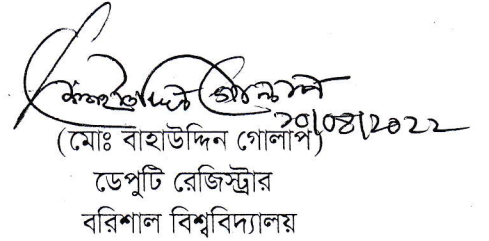 ২০/০৪/২০২২
(মোঃ বাহাউদ্দিন গোলাপ)
ডেপুটি রেজিস্ট্রার
বরিশাল বিশ্ববিদ্যালয়